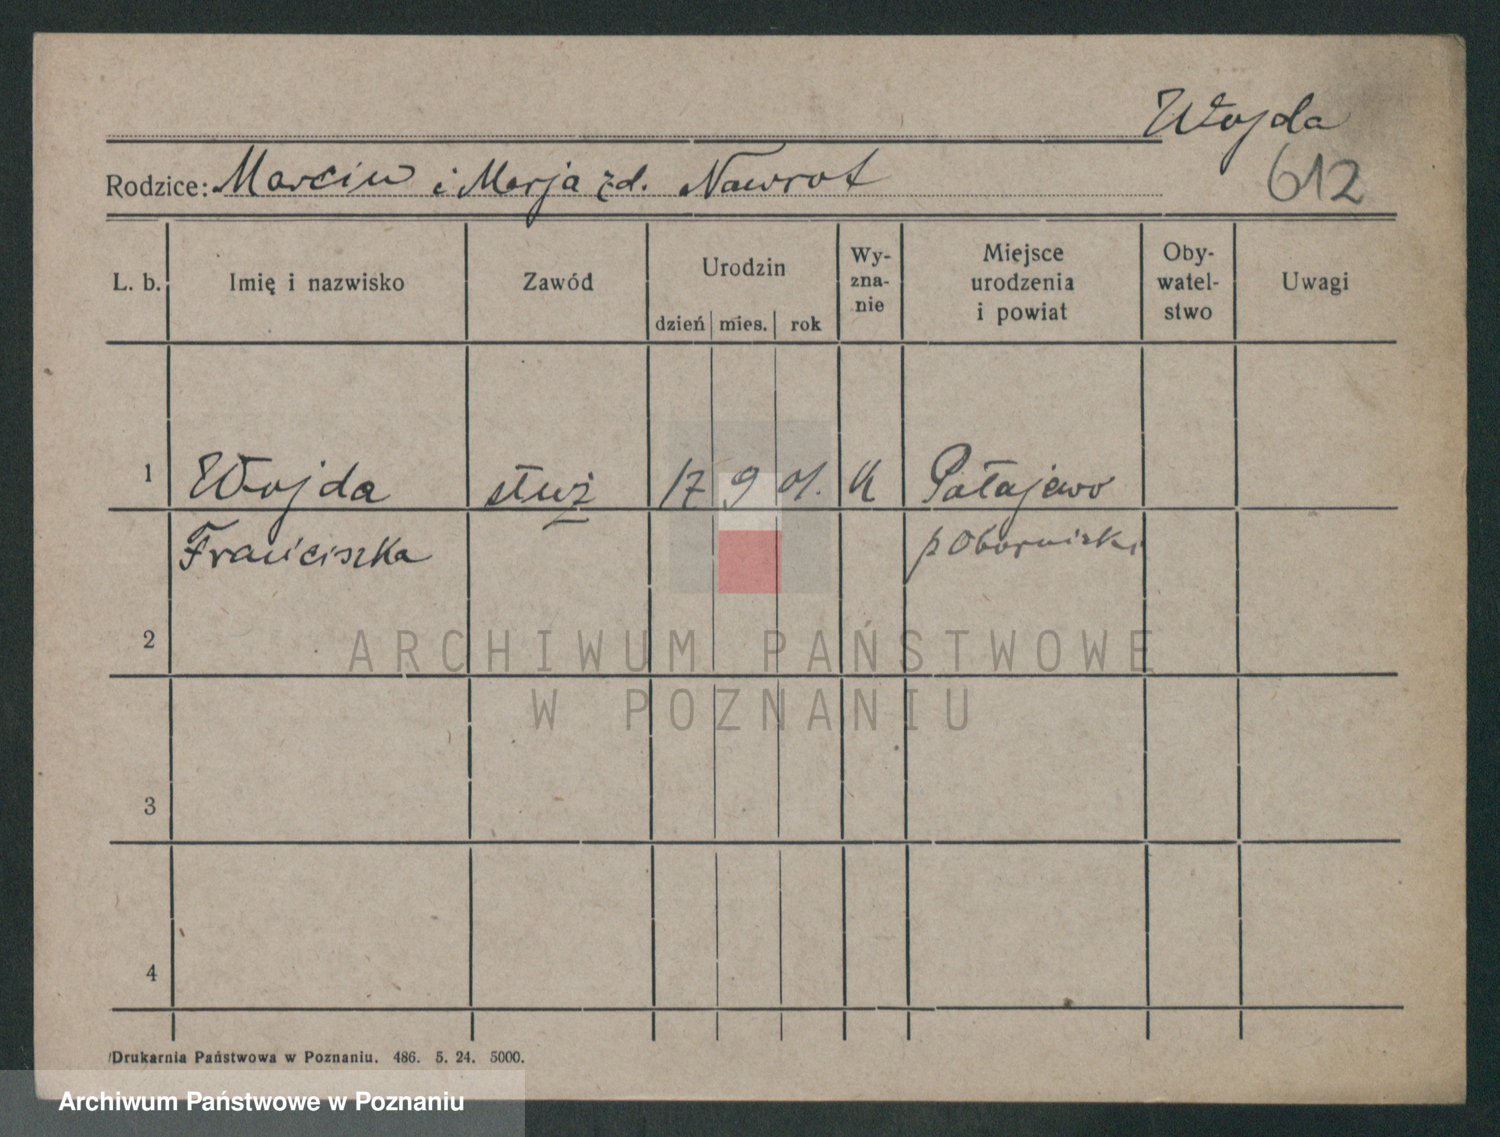 Wojda
612
Rodzice: Marcin i Marja zd. Nawrot
L. b.
Imię i nazwisko
Zawód
Urodzin
dzień mies. rok
Wy-
zna-
nie
Miejsce
urodzenia
i powiat
Oby-
watel-
stwo
Uwagi
1 Wojda służ 17 9 01. k Połajewo
Franciszka p Obornicki
2
3
4
Drukarnia Państwowa w Poznaniu. 486. 5. 24. 5000.
ARCHIWUM PAŃSTWOWE
W POZNANIU
Archiwum Państwowe w Poznaniu